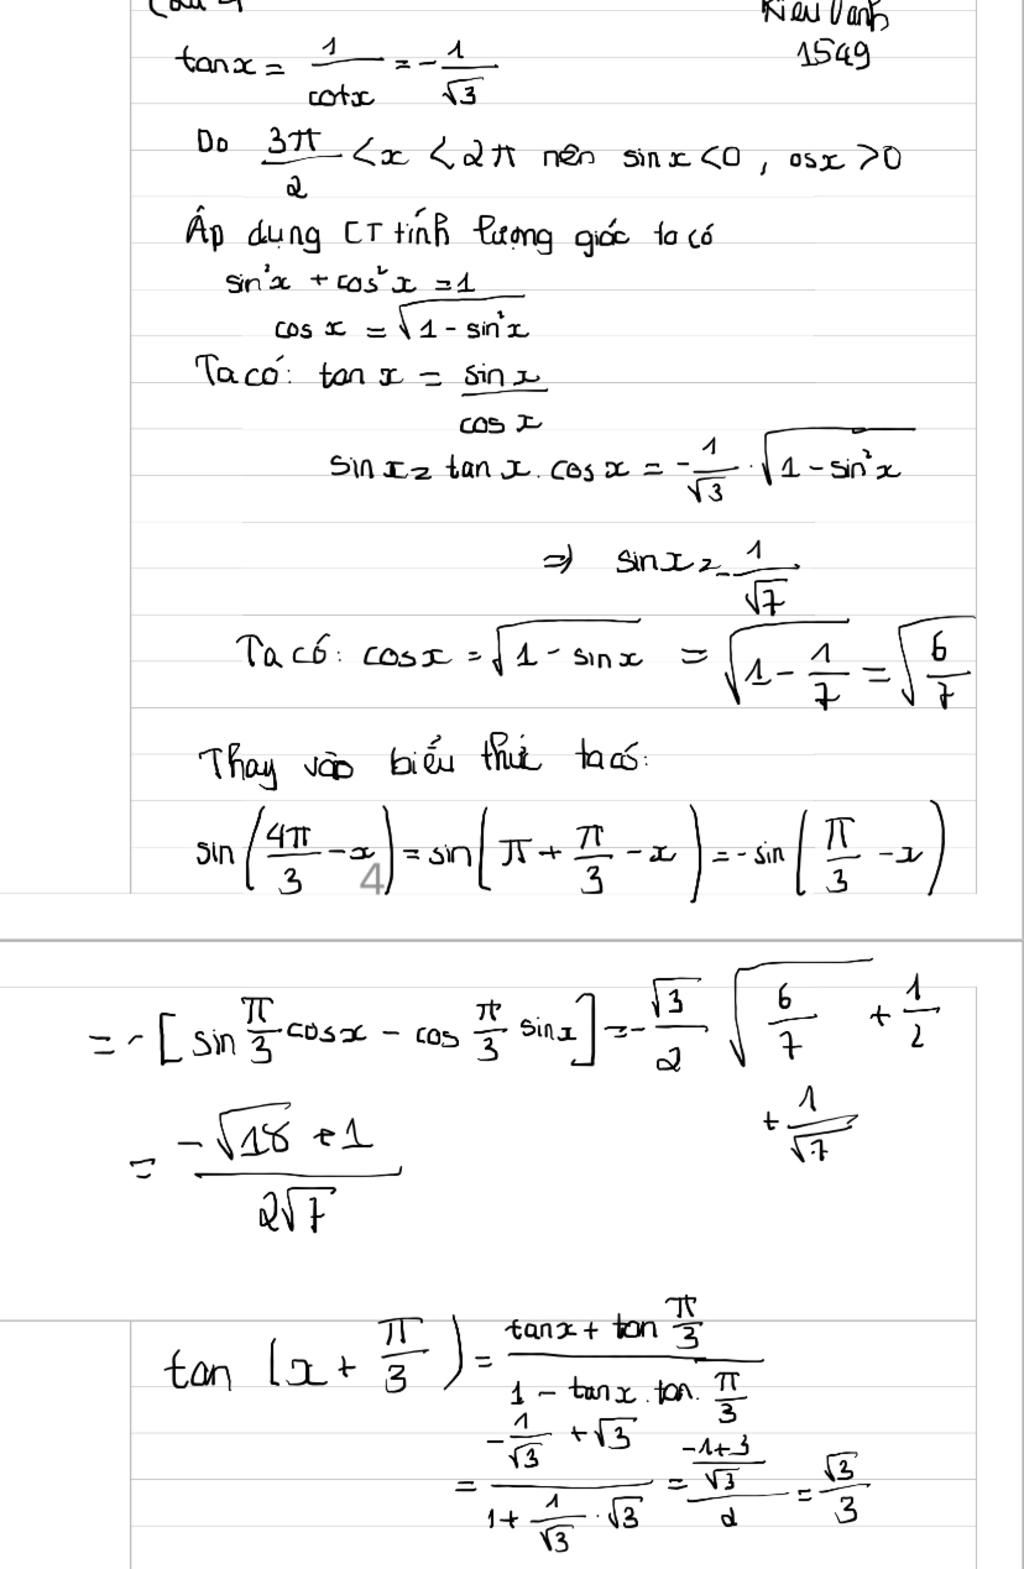 Câu 4
Kiều Oanh
1549
tanx = 1/cotx = -1/√3
Do 3π/2 < x < 2π nên sin x < 0, osx > 0
Áp dụng CT tính lượng giác ta có
sin²x + cos²x = 1
cos x = √(1 - sin²x)
Ta có: tan x = sin x / cos x
sin x = tan x . cos x = -1/√3 . √(1 - sin²x)
⇒ sin x = -1/√7
Ta có: cosx = √(1 - sin x) = √(1 - 1/7) = √(6/7)
Thay vào biểu thức ta có:
sin(4π/3 - x) = sin(π + π/3 - x) = -sin(π/3 - x)
4
= -[sin π/3 cosx - cos π/3 sinx] = -√3/2 √(6/7) + 1/2
+ 1/√7
= (-√18 + 1)/(2√7)
tan (x + π/3) = (tanx + tan π/3)/(1 - tanx . tan . π/3)
= (-1/√3 + √3)/(1 + 1/√3 . √3) = ((-1+3)/√3)/2 = √3/3